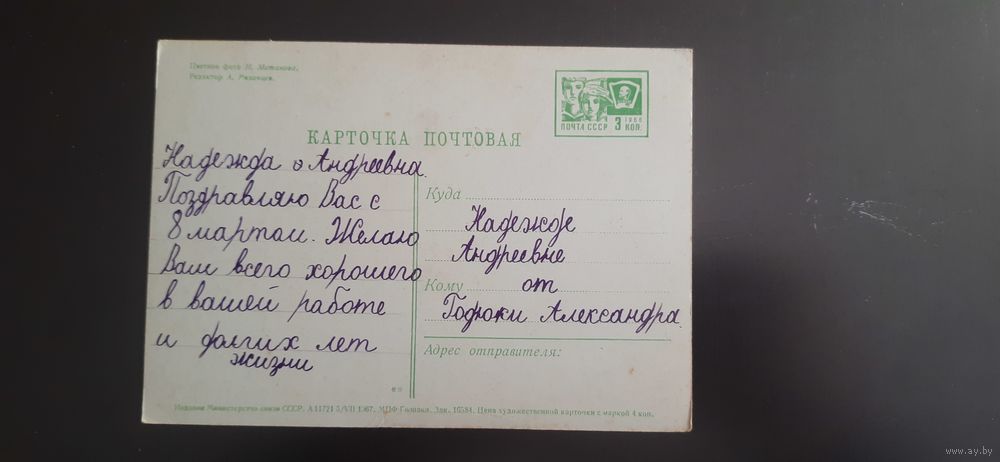 Цветное фото И.
Редактор А. Рязанцев.
1966
ПОЧТА СССР 3 КОП.
КАРТОЧКА ПОЧТОВАЯ
Надежда о Андреевна.
Поздравляю Вас с
8 мартом. Желаю
Вам всего хорошего
в вашей работе
и фолгих лет
жизни
Куда
Надежде
Андреевне
Кому от
Годюки Александра.
Адрес отправителя:
Издание Министерства связи СССР. А11721 5/VII 1967. МПФ Гознака. Зак. 10584. Цена художественной карточки с маркой 4 коп.
www.ay.by